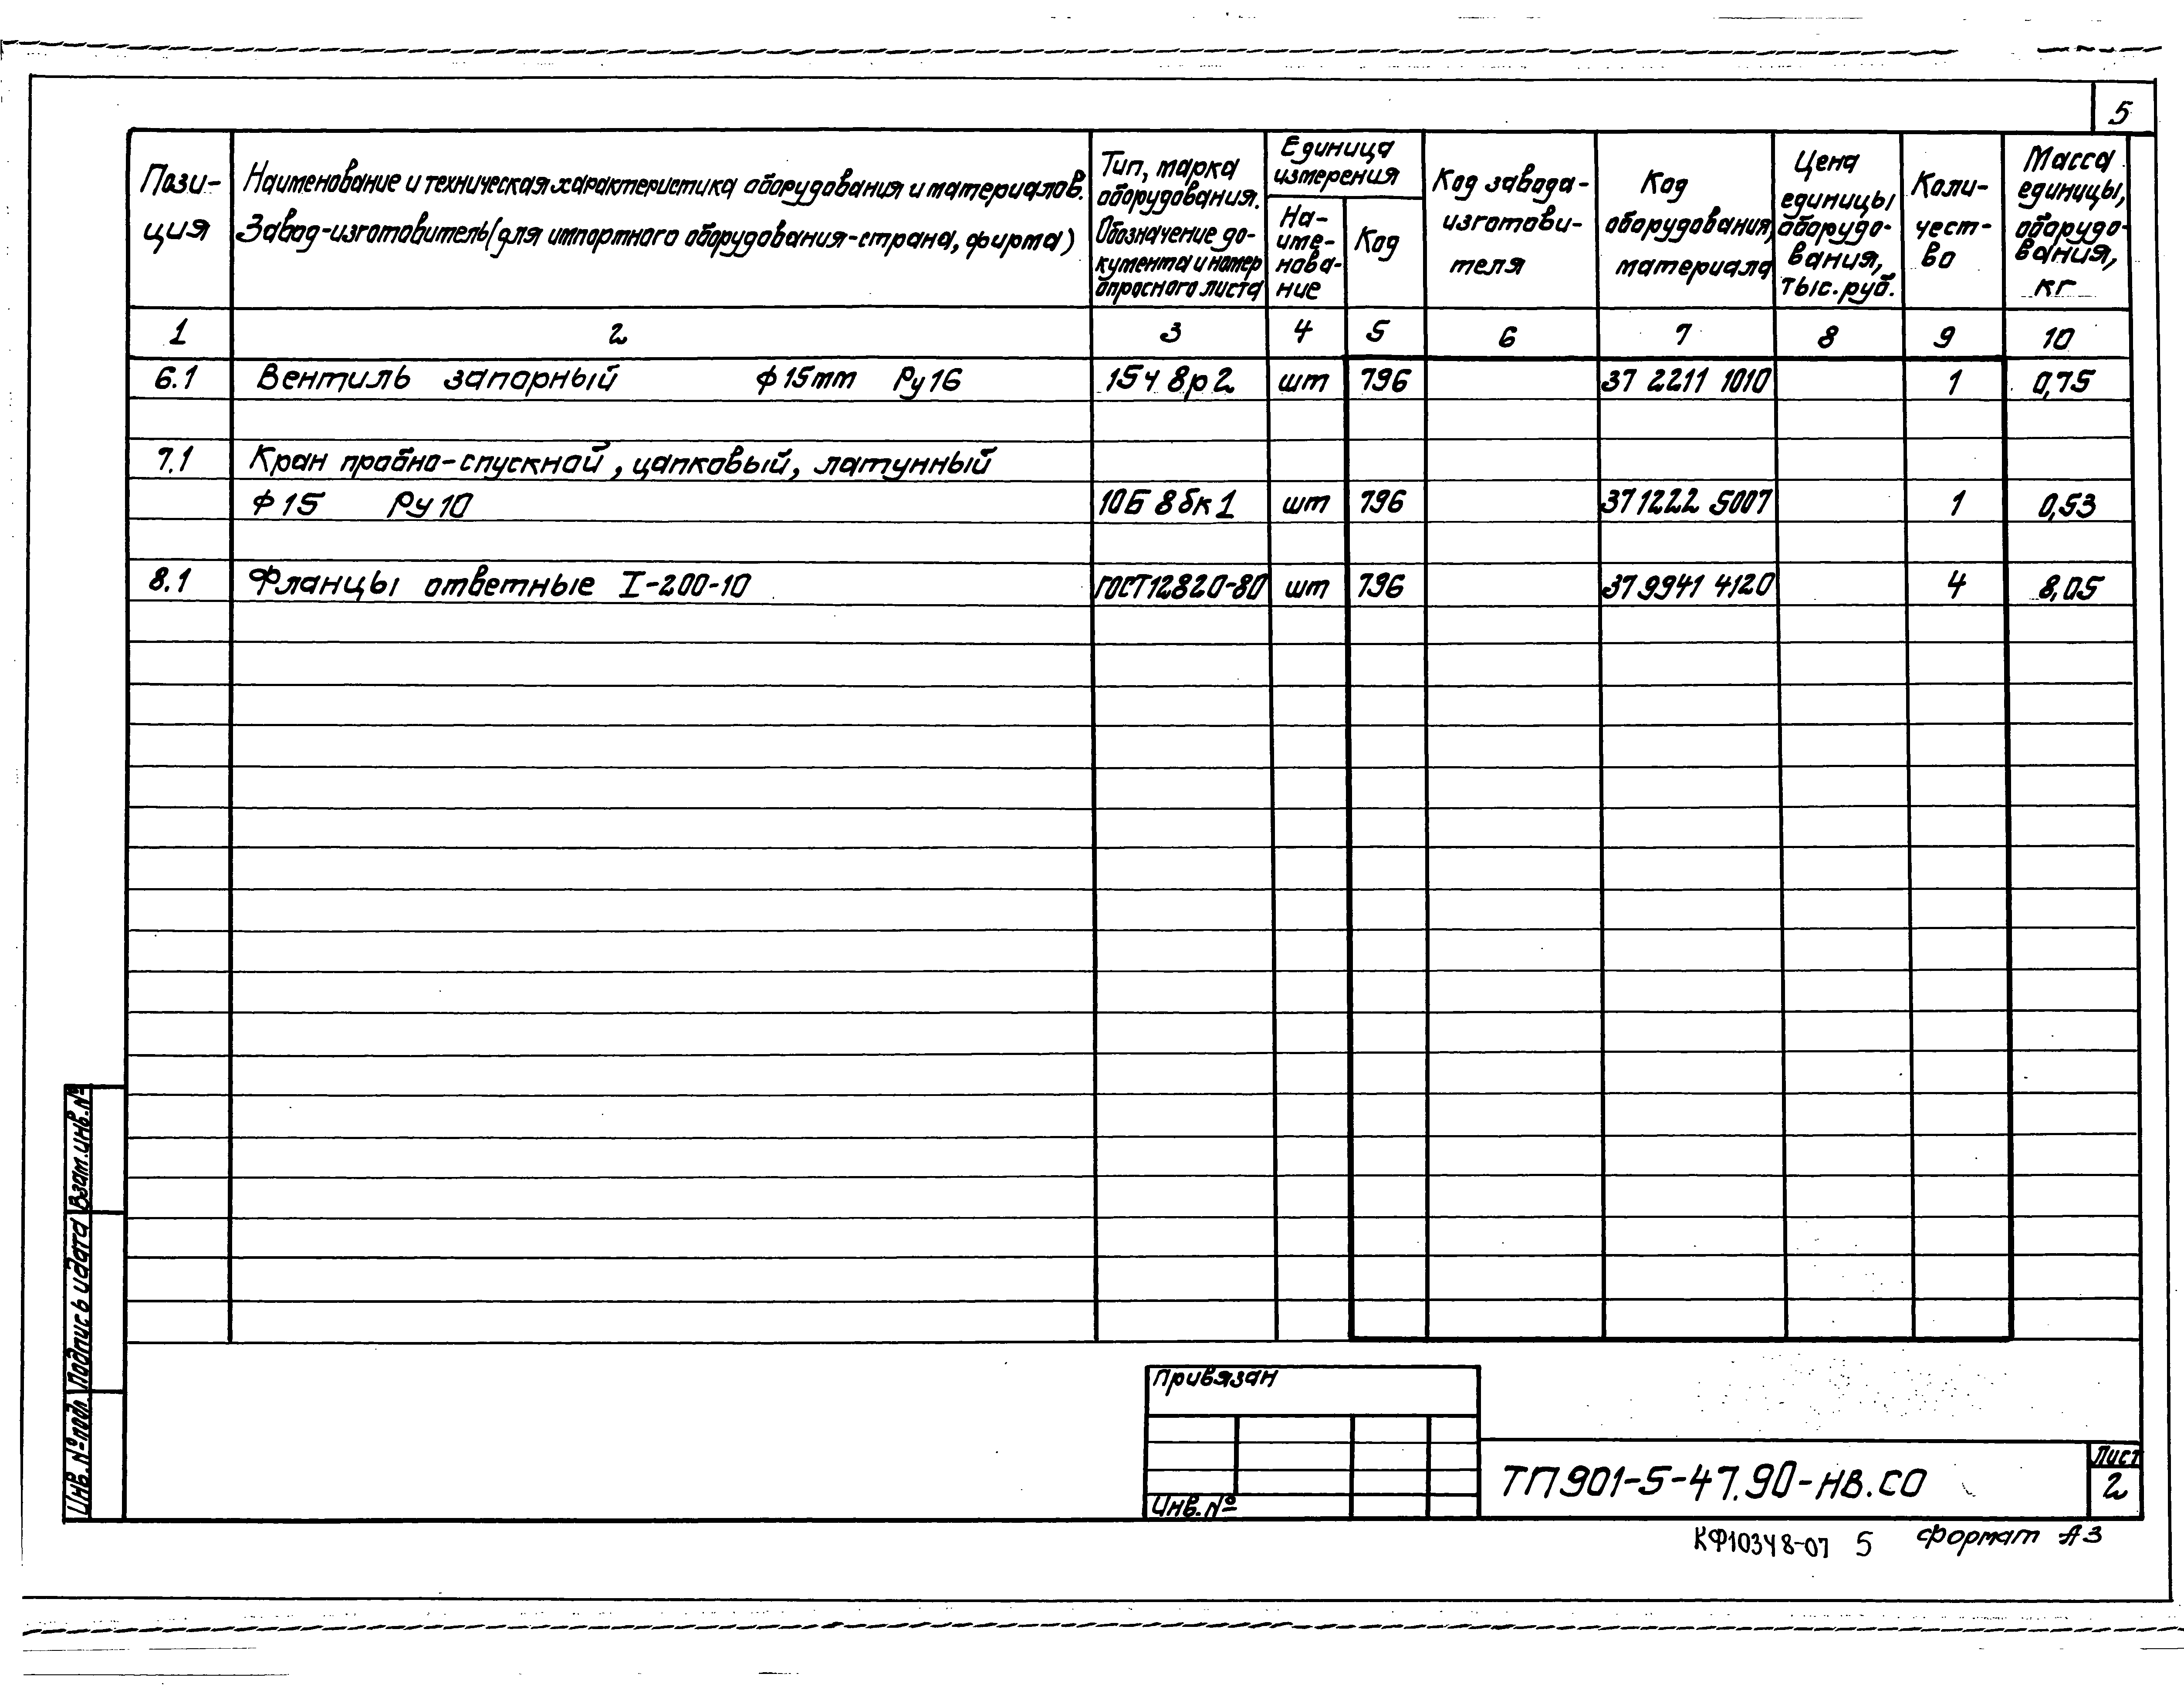 5
Пози-
ция
Наименование и техническая характеристика оборудования и материалов.
Завод-изготовитель (для импортного оборудования-страна, фирма)
Тип, марка
оборудования.
Обозначение до-
кумента и номер
опросного листа
Единица
измерения
На-
име-
нова-
ние
Код
Код завода-
изготови-
теля
Код
оборудования,
материала
Цена
единицы
оборудо-
вания,
тыс.руб.
Коли-
чест-
во
Масса
единицы,
оборудо-
вания,
кг
1 2 3 4 5 6 7 8 9 10
6.1 Вентиль запорный ф15мм Ру16 15ч 8р2 шт 796 37 2211 1010 1 0,75
7.1 Кран пробно-спускной, цапковый, латунный
ф15 Ру10 10Б 8бк1 шт 796 37 1222 5007 1 0,53
8.1 Фланцы ответные I-200-10 ГОСТ12820-80 шт 796 37 9941 4120 4 8,05
Взам.инв.№
Подпись и дата
Инв.№подл.
Привязан
Инв.№
ТП901-5-47.90-НВ.СО
Лист
2
КФ10348-07 5 формат А3